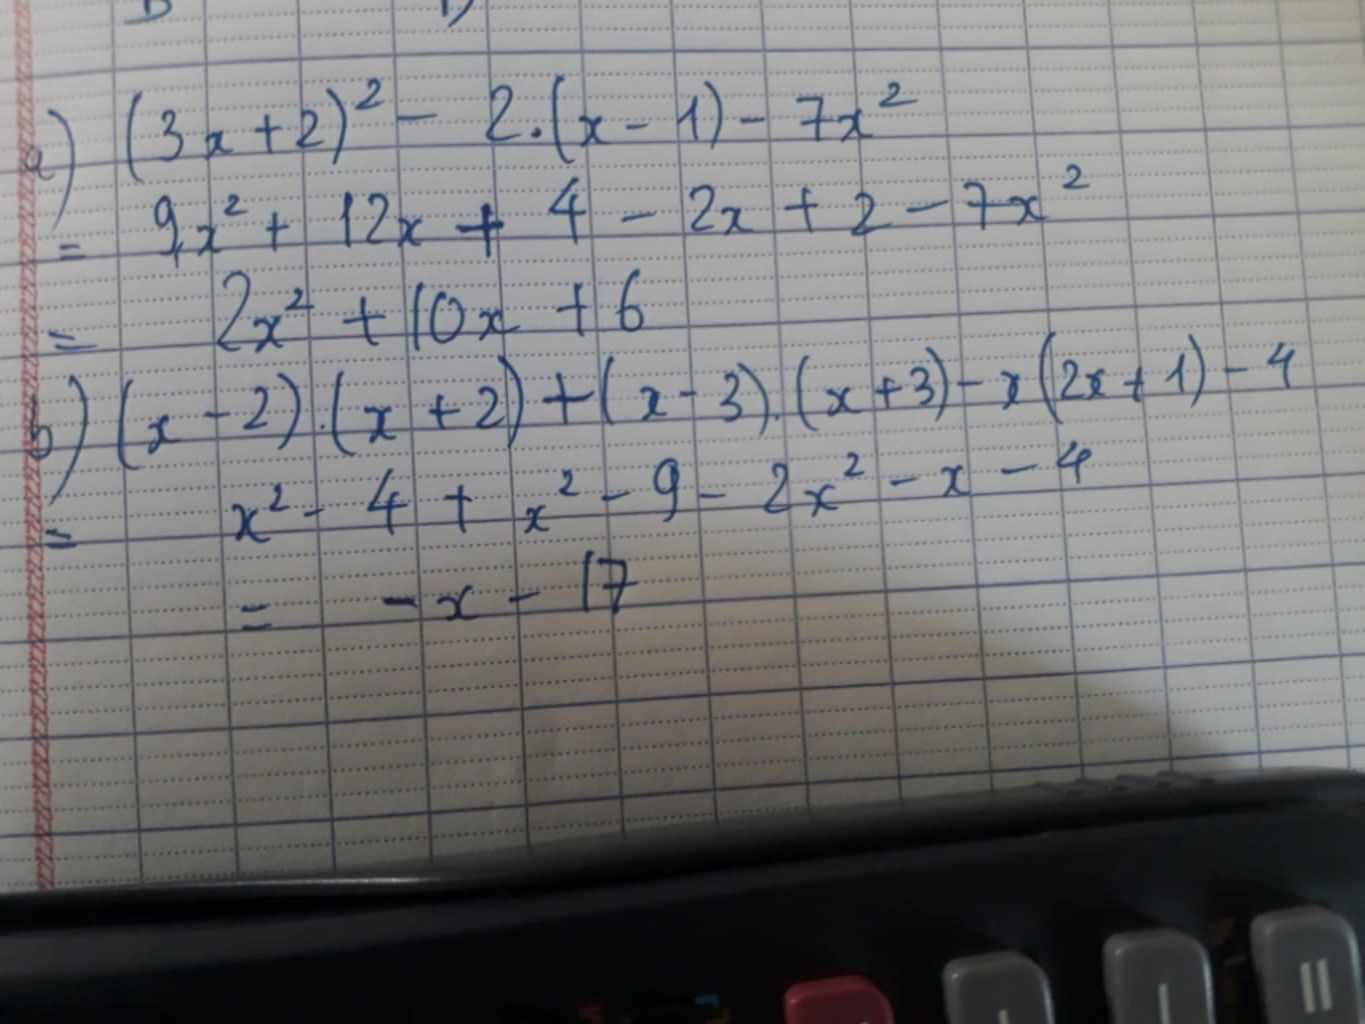 a) (3x + 2)² - 2.(x - 1) - 7x²
= 9x² + 12x + 4 - 2x + 2 - 7x²
= 2x² + 10x + 6
b) (x - 2).(x + 2) + (x - 3).(x + 3) - x(2x + 1) - 4
= x² - 4 + x² - 9 - 2x² - x - 4
= - x - 17